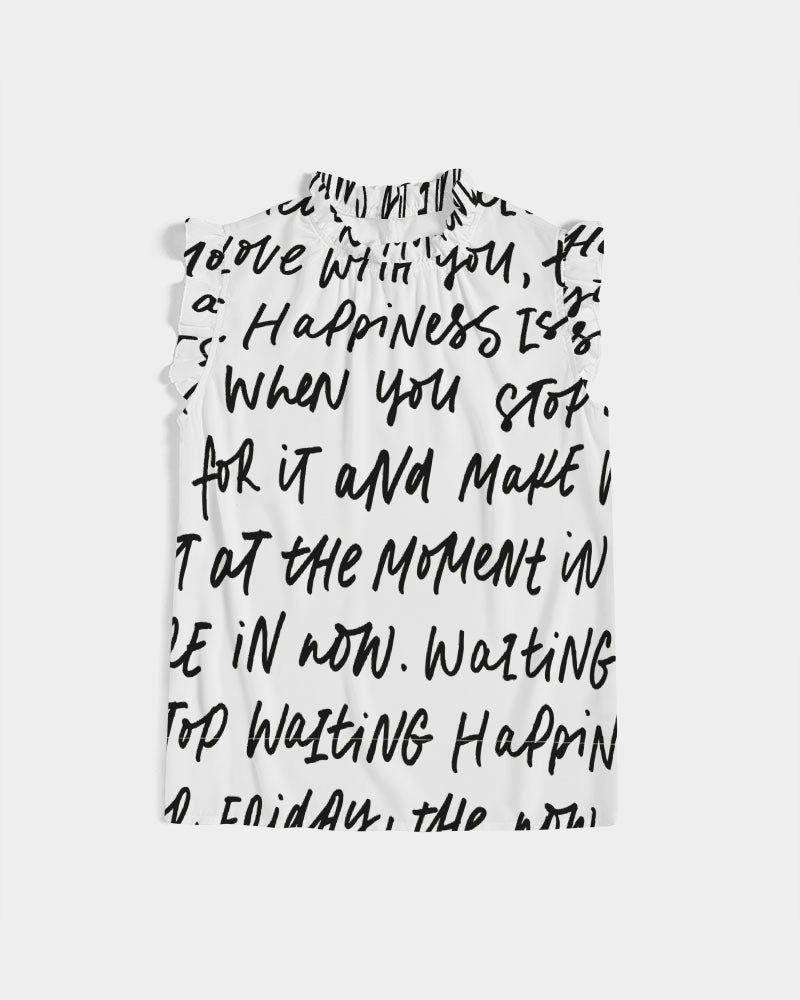 love with you,
. Happiness Is
when you stop
for it and make
at the moment in
in now. waiting
waiting Happin
Friday, the now